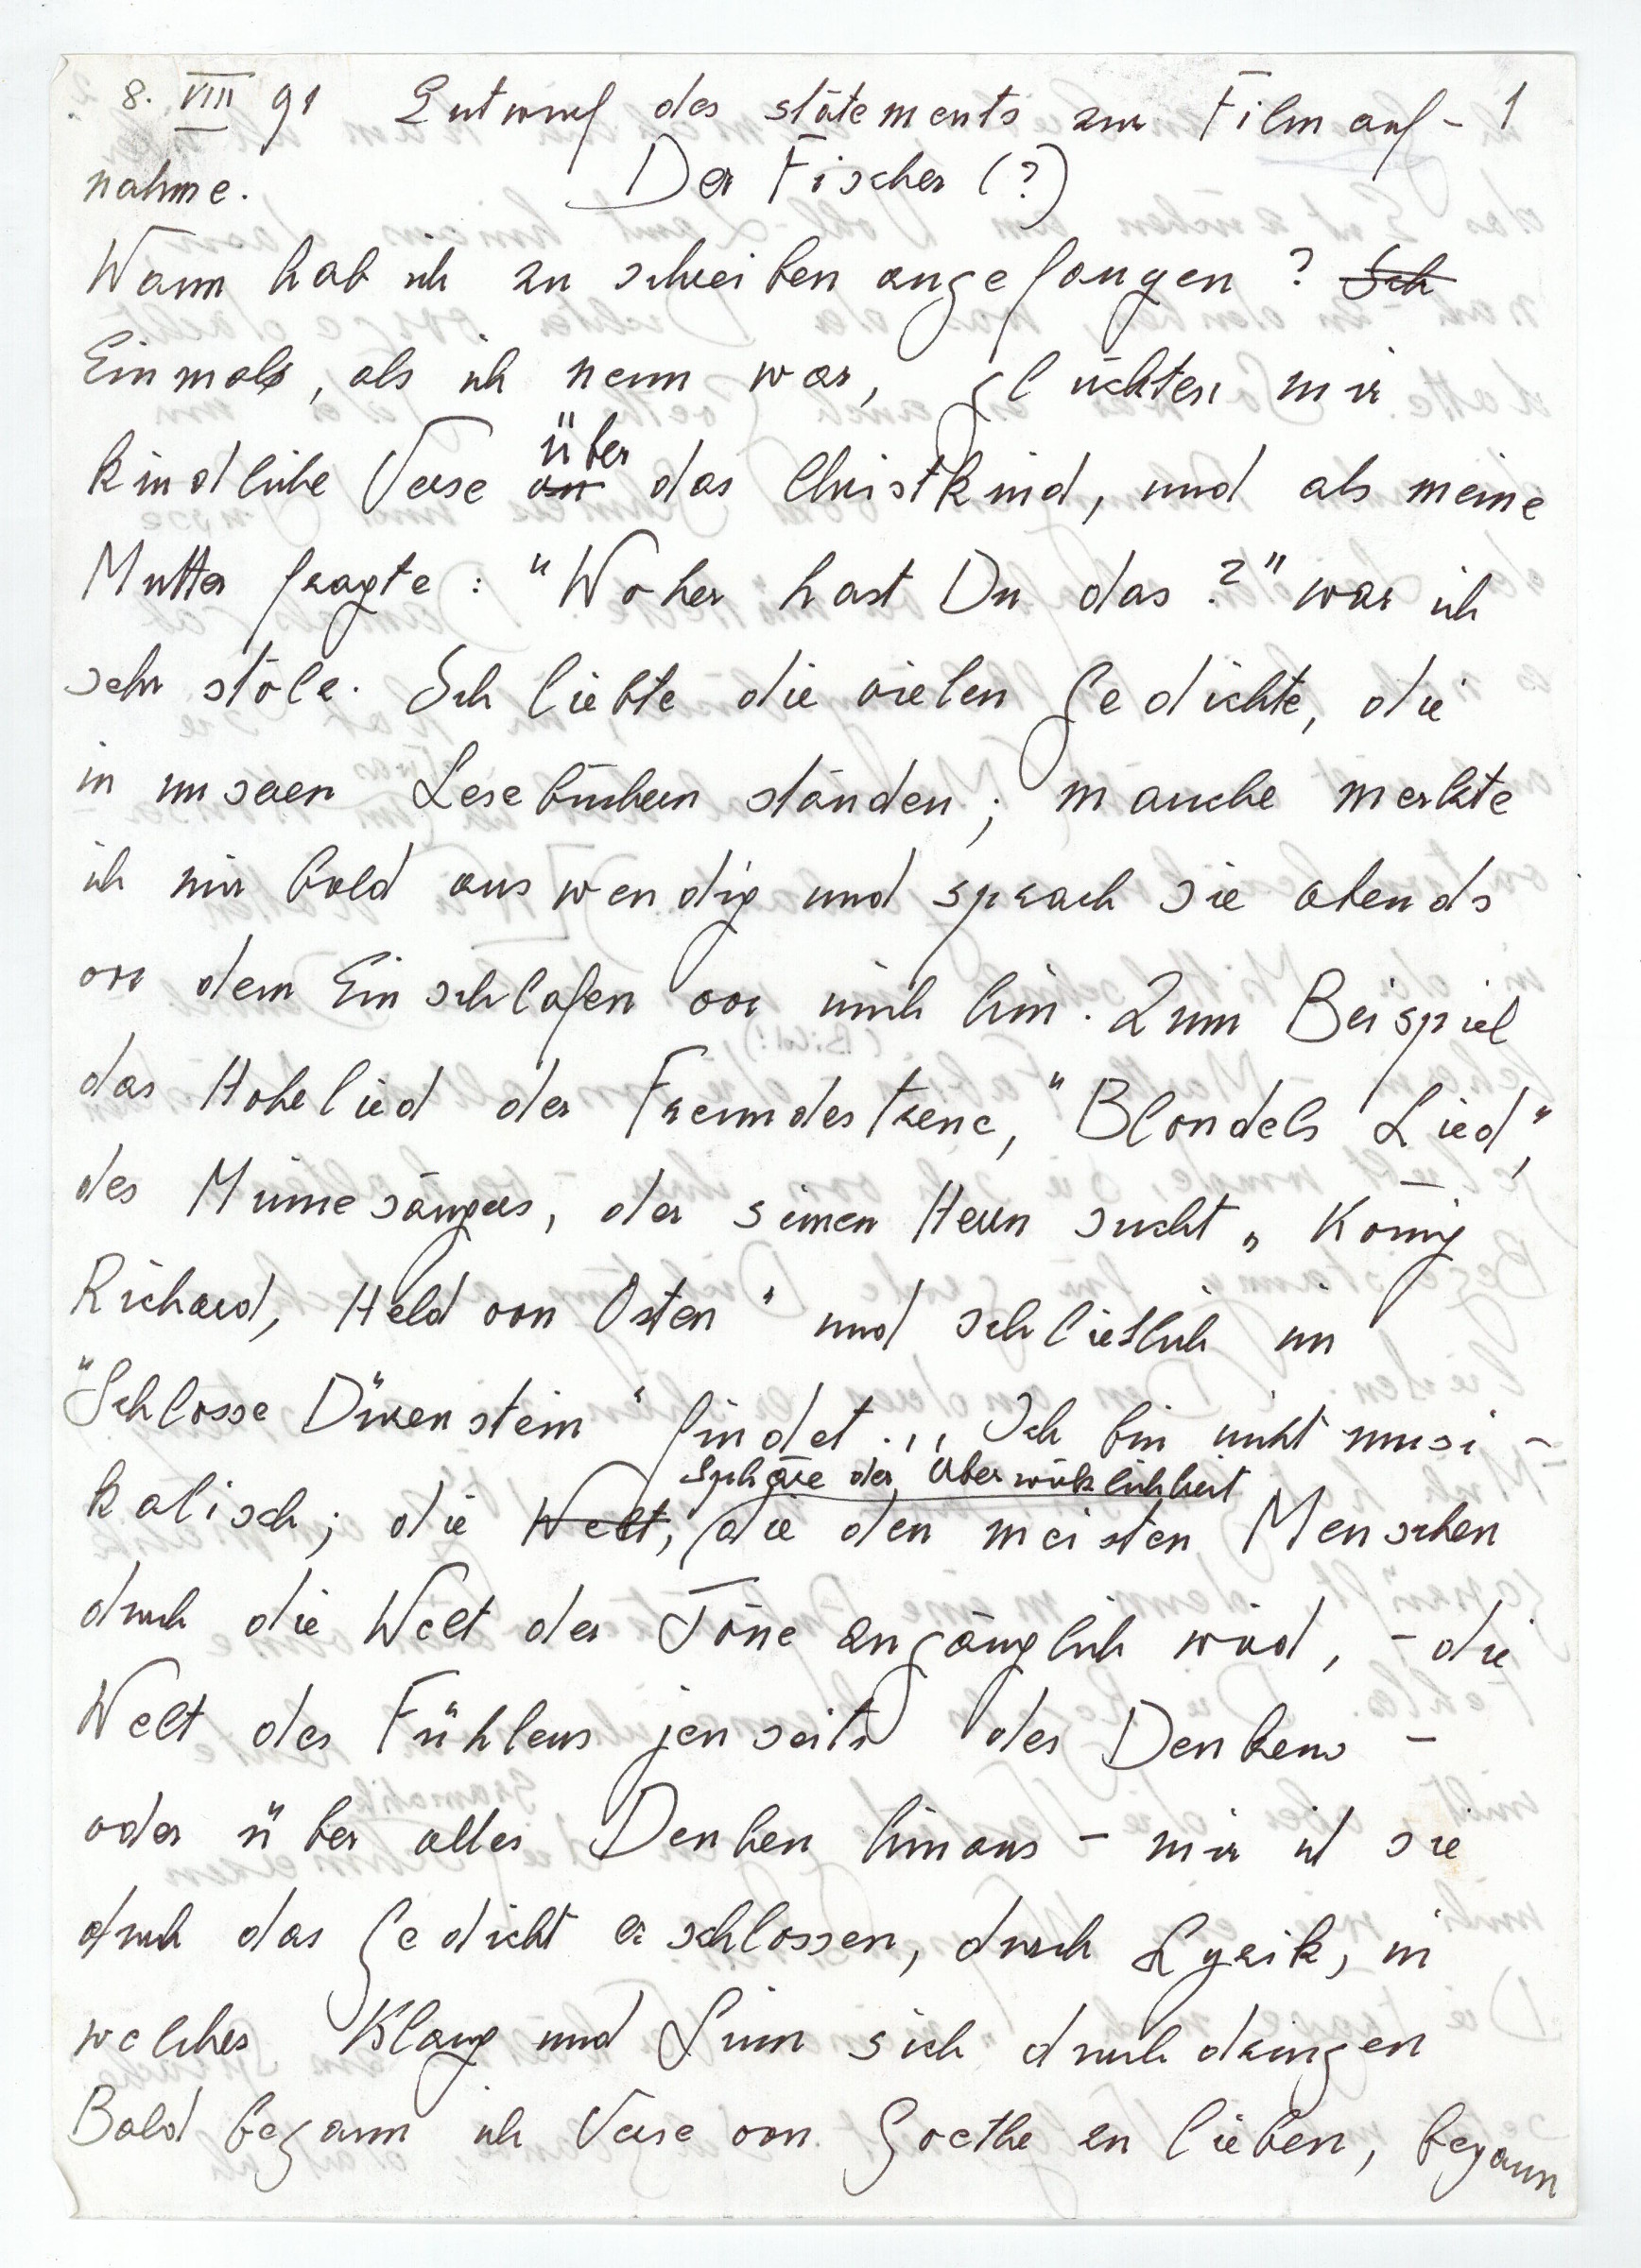 8. VIII 91 Entwurf des statements zur Filmauf- 1
nahme. Der Fischer (?)
Wann hab ich zu schreiben angefangen? Ich
Einmal, als ich neun war, glückten mir
über
kindliche Verse an das Christkind, und als meine
Mutter fragte: "Woher hast Du das?" war ich
sehr stolz. Ich liebte die vielen Gedichte, die
in unseren Lesebüchern standen; manche merkte
ich mir bald auswendig und sprach sie abends
vor dem Einschlafen vor mich hin. Zum Beispiel
das Hohelied der Freundestreue, "Blondels Lied",
des Minnesängers, der seinen Herrn sucht "König
Richard, Held von Osten" und schließlich im
"Schlosse Dürenstein" findet... Ich bin nicht musi-
Sphäre der Überwirklichkeit
kalisch; die Welt, die den meisten Menschen
durch die Welt der Töne zugänglich wird, - die
Welt des Fühlens jenseits des Denkens -
oder über alles Denken hinaus - mir ist sie
durch das Gedicht erschlossen, durch Lyrik, in
welcher Klang und Sinn sich durchdringen
Bald begann ich Verse von Goethe zu lieben, begann